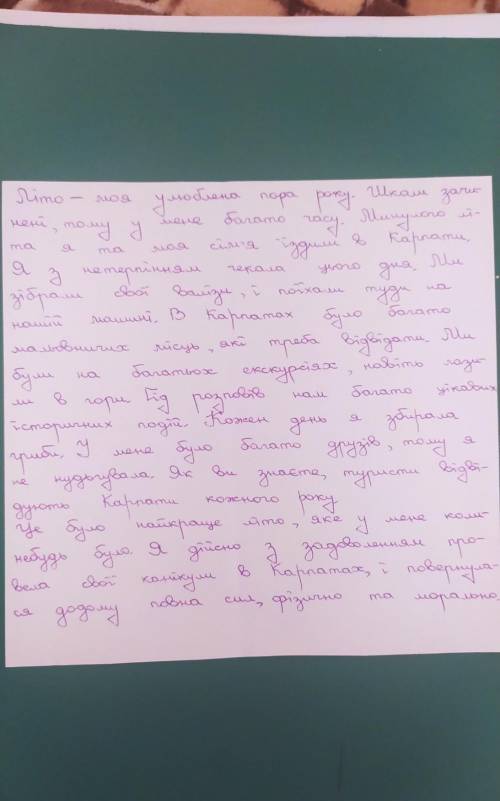 Літо – моя улюблена пора року. Шкали зачи-
нені, тому у мене багато часу. Минулого лі-
та я та моя сім'я їздили в Карпати.
Я з нетерпінням чекала цього дня. Ми
зібрали свої валізи, і поїхали туди на
нашій машині. В Карпатах було багато
мальовничих місць, які треба відвідати. Ми
були на багатьох екскурсіях, навіть лази-
ли в гори. Гід розповів нам багато цікавих
історичних подій. Кожен день я збирала
гриби. У мене було багато друзів, тому я
не нудьгувала. Як ви знаєте, туристи відві-
дують Карпати кожного року
Це було найкраще літо, яке у мене коли-
небудь було. Я дійсно з задоволенням про-
вела свої канікули в Карпатах, і повернула-
ся додому повна сил, фізично та морально.